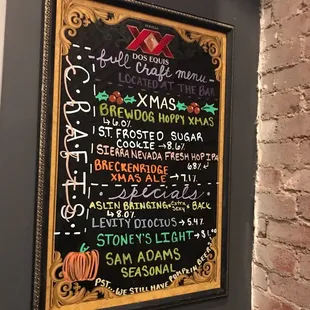 XX
DOS EQUIS
full Craft menu
LOCATED AT THE BAR
CRAFTS
XMAS
BREWDOG HOPPY XMAS
→6.0%
ST. FROSTED SUGAR
COOKIE →8.6%
SIERRA NEVADA FRESH HOP IPA
6.8%
BRECKENRIDGE
XMAS ALE → 7.1%
specials
ASLIN BRINGING BACK
→ 8.0%
LEVITY DIOCIUS → 5.4%
STONEY'S LIGHT →
SAM ADAMS
SEASONAL
PST... WE STILL HAVE PUMPKIN BEER!